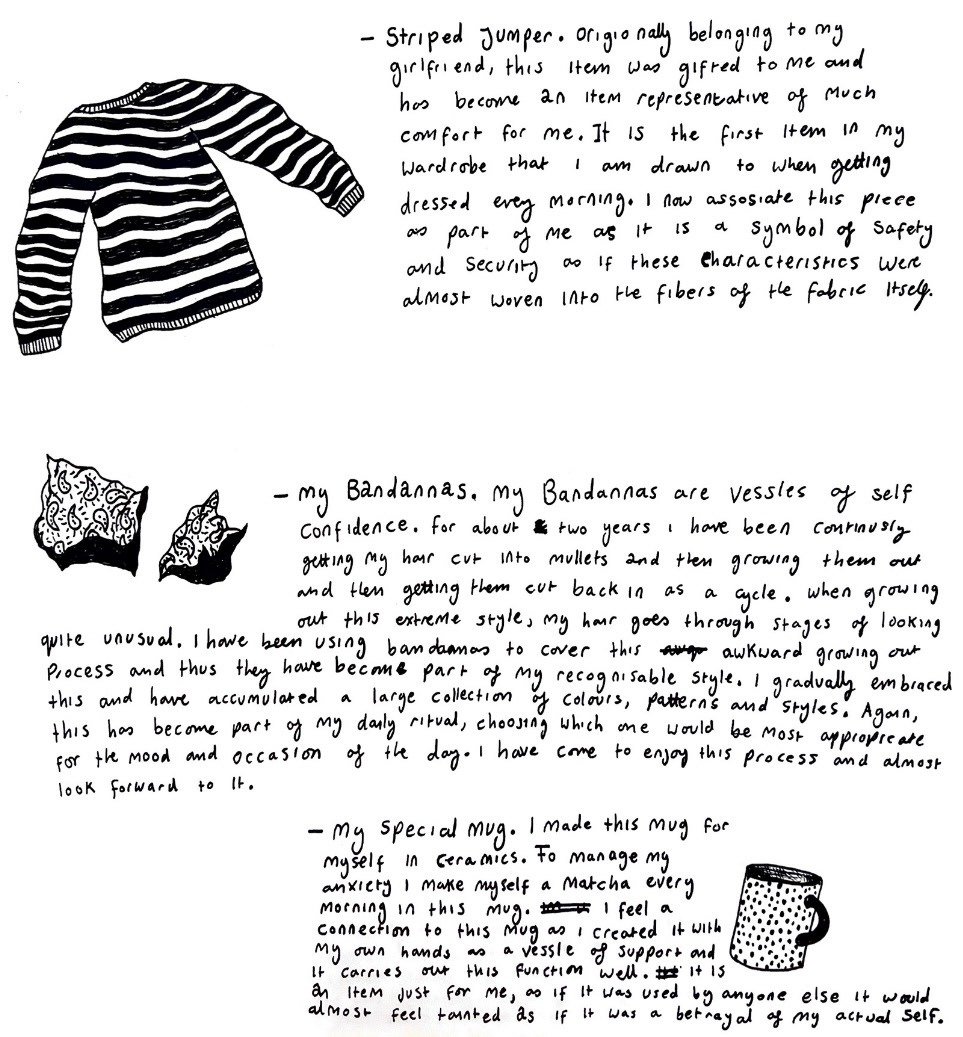 - Striped Jumper. Origionally belonging to my
girlfriend, this item was gifted to me and
has become an item representative of much
comfort for me. It is the first item in my
wardrobe that I am drawn to when getting
dressed every morning. I now assosiate this piece
as part of me as it is a symbol of safety
and security as if these characteristics were
almost woven into the fibers of the fabric itself.
- My Bandannas. My Bandannas are vessles of self
confidence. For about two years I have been continusly
getting my hair cut into mullets and then growing them out
and then getting them cut back in as a cycle. When growing
out this extreme style, my hair goes through stages of looking
quite unusual. I have been using bandannas to cover this awkward growing out
process and thus they have become part of my recognisable style. I gradually embraced
this and have accumulated a large collection of colours, patterns and styles. Again,
this has become part of my daily ritual, choosing which one would be most appropreate
for the mood and occasion of the day. I have come to enjoy this process and almost
look forward to it.
- My special mug. I made this mug for
myself in ceramics. To manage my
anxiety I make myself a matcha every
morning in this mug. I feel a
connection to this mug as I created it with
my own hands as a vessle of support and
it carries out this function well. it is
an item just for me, as if it was used by anyone else it would
almost feel tainted as if it was a betrayal of my actual self.